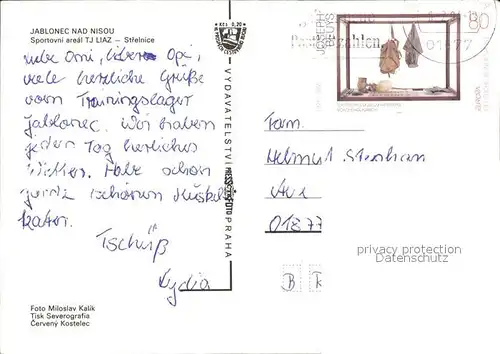 JABLONEC NAD NISOU
Sportovní areál TJ LIAZ — Střelnice
liebe Omi, lieber Opi,
viele herzliche Grüße
vom Trainingslager
Jablonec. Wir haben
jeden Tag herrliches
Habe schon
ganz schönen Muskel-
kater.
Tschüß
Lydia
Foto Miloslav Kalík
Tisk Severografia
Červený Kostelec
Kčs 0,20
VYDAVATELSTVÍ
PRAHA
JOSEPH
BEUYS
80
01877
Fam.
Helmut
01877
B
privacy protection
Datenschutz